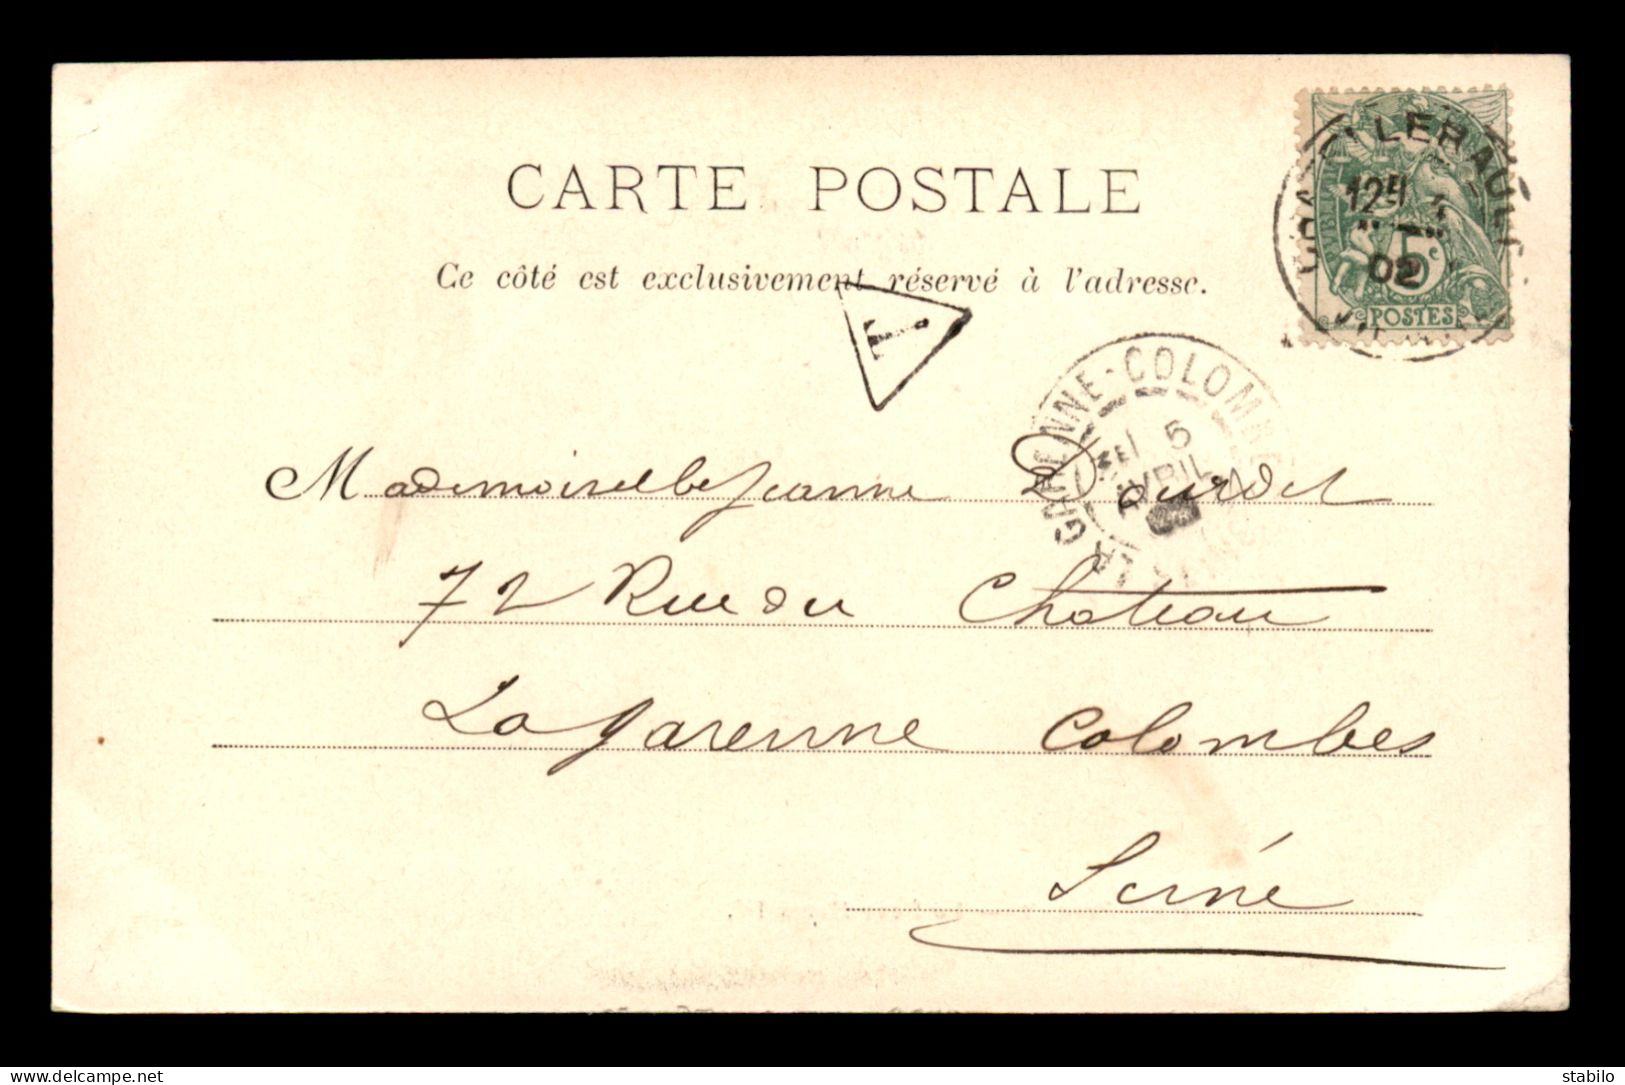 CARTE POSTALE
Ce côté est exclusivement réservé à l'adresse.
12 4
02
5c
POSTES
T
LA GARENNE-COLOMB
5
AVRIL
Mademoiselle Jeanne Bourdet
72 Rue du Chateau
La Garenne Colombes
Seine
delcampe.net
stabilo